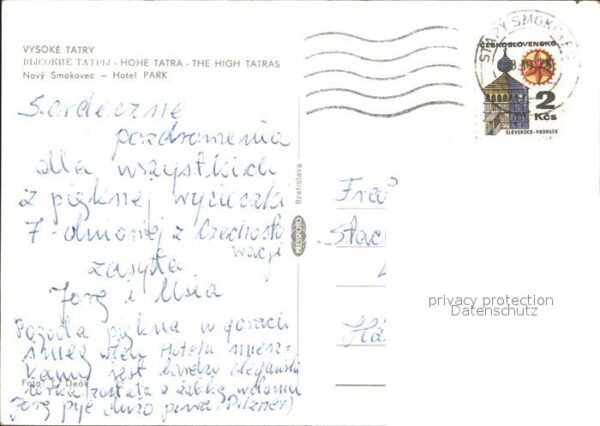 VYSOKÉ TATRY
ВЫСОКИЕ ТАТРЫ - HOHE TATRA - THE HIGH TATRAS
Nový Smokovec — Hotel PARK
Serdeczne
pozdrowienia
dla wszystkich
z pięknej wycieczki
7-dniowej z Czechosło
wacji
zasyła
Jorg i Misia
Pogoda piękna w górach
śnieg
Hotelu miesz-
kamy jest bardzo elegancki
została z żabką w domu
Jorg pije dużo piwa (Pilzner)
Foto: L. Deák
Bratislava
PRESSFOTO
STARÝ SMOKOVEC
ČESKOSLOVENSKO
2
Kčs
SLOVENSKO-HRONSEK
Fra
Stac
Ha
privacy protection
Datenschutz